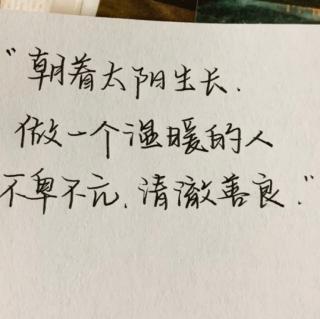 “朝着太阳生长.
做一个温暖的人
不卑不亢.清澈善良.”